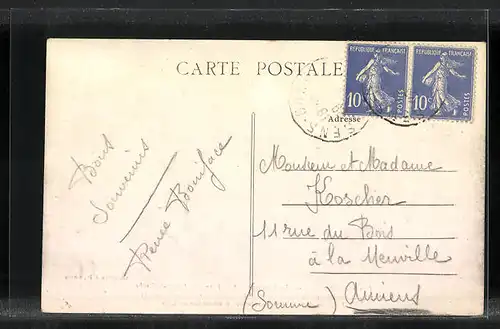 CARTE POSTALE
REPUBLIQUE FRANÇAISE
10c
POSTES
REPUBLIQUE FRANÇAISE
10c
POSTES
Adresse
Bons
Souvenirs
Renée Boniface
Monsieur et Madame
Koscher
11 rue du Bois
à la Neuville
Amiens
(Somme)